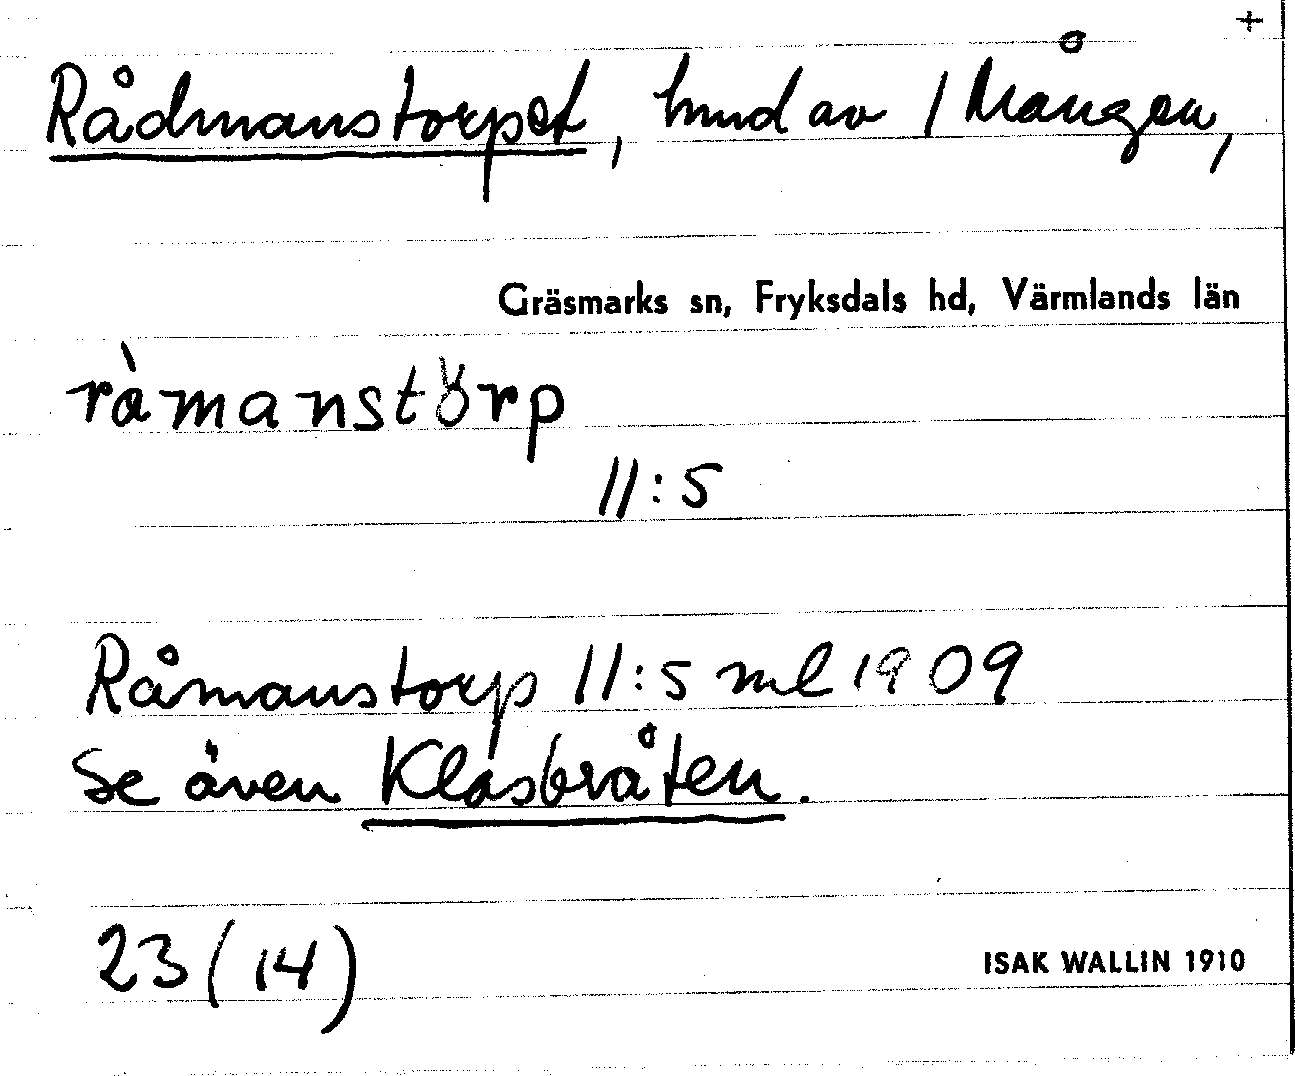 +
Rådmanstorpet, hmd av 1 Mången,
Gräsmarks sn, Fryksdals hd, Värmlands län
ràmanstörp
11:5
Råmanstorp 11:5 ml 1909
Se även Klasbråten.
23 (14)
ISAK WALLIN 1910